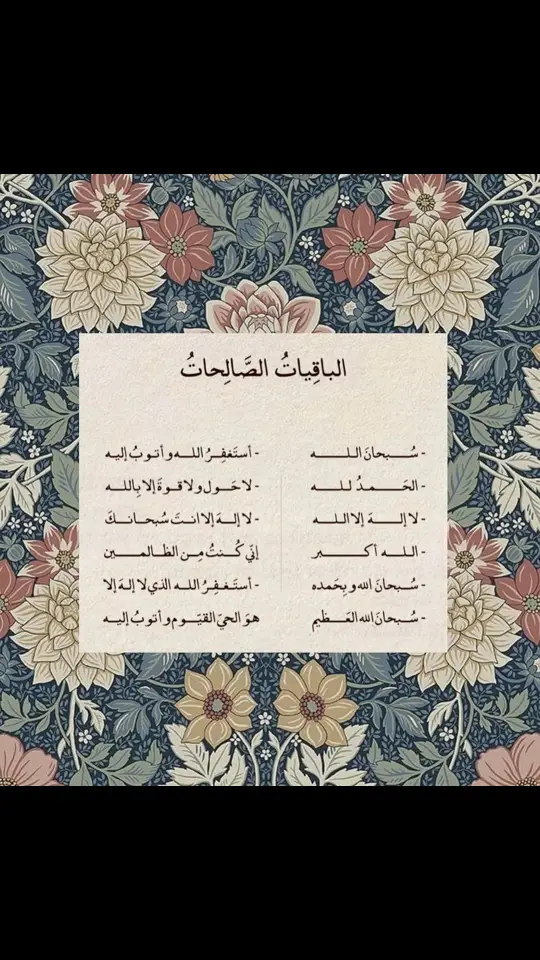 الباقِياتُ الصَّالِحاتُ
- سُبحانَ اللـه
- الحَمدُ للـه
- لا إلـهَ إلا اللـه
- اللـه أكبر
- سُبحانَ الله و بِحَمده
- سُبحانَ الله العَظيمِ
- أستَغفِرُ اللـه و أتوبُ إليه
- لا حَول ولا قوةَ إلا بِاللـه
- لا إلـهَ إلا انتَ سُبحانكَ
إنّي كُنتُ مِن الظالمين
- أستَغفِرُ اللـه الذي لا إلـهَ إلا
هوَ الحيّ القيّوم و أتوبُ إليه